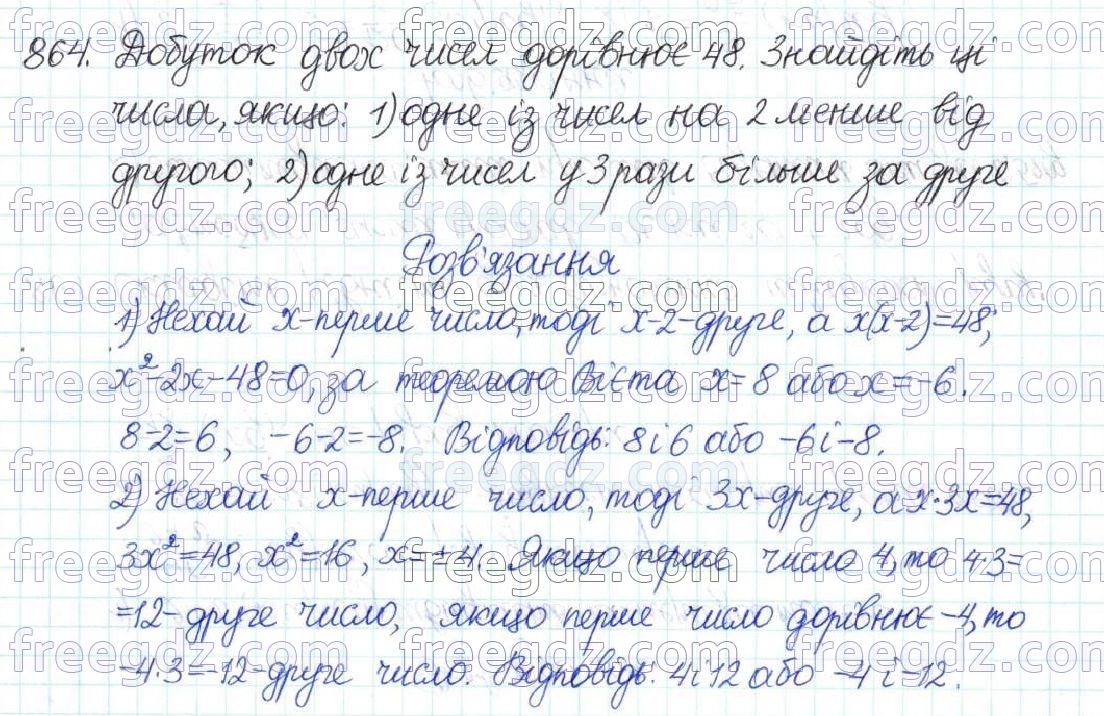 864. Добуток двох чисел дорівнює 48. Знайдіть ці
числа, якщо: 1) одне із чисел на 2 менше від
другого; 2) одне із чисел у 3 рази більше за друге
Розв'язання
1) Нехай х-перше число, тоді х-2-друге, а х(х-2)=48;
х²-2х-48=0, за теоремою Вієта х=8 або х=-6.
8-2=6, -6-2=-8. Відповідь: 8 і 6 або -6 і -8.
2) Нехай х-перше число, тоді 3х-друге, а х·3х=48,
3х²=48, х²=16, х=±4. Якщо перше число 4, то 4·3=
=12-друге число, якщо перше число дорівнює -4, то
-4·3=-12-друге число. Відповідь: 4 і 12 або -4 і -12.